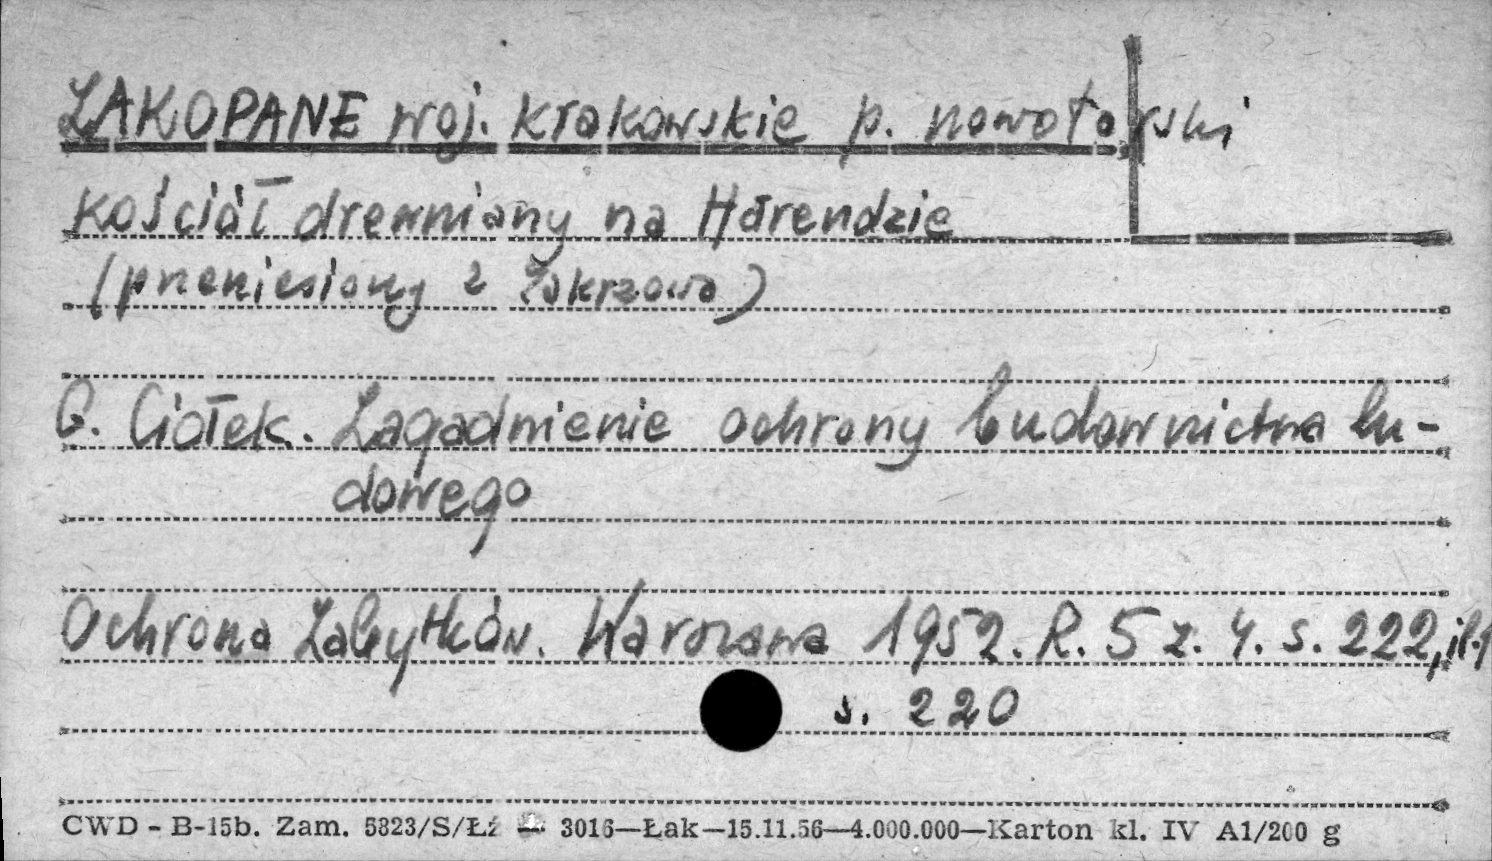 ZAKOPANE woj. krakowskie p. nowotarski
Kościół drewniany na Harendzie
(przeniesiony z Zakrzowa)
G. Ciołek. Zagadnienie ochrony budownictwa lu-
dowego
Ochrona Zabytków. Warszawa 1952. R. 5 z. 4. s. 222, il. 1
s. 220
CWD - B-15b. Zam. 5823/S/Łź 3016—Łak—15.11.56—4.000.000—Karton kl. IV A1/200 g